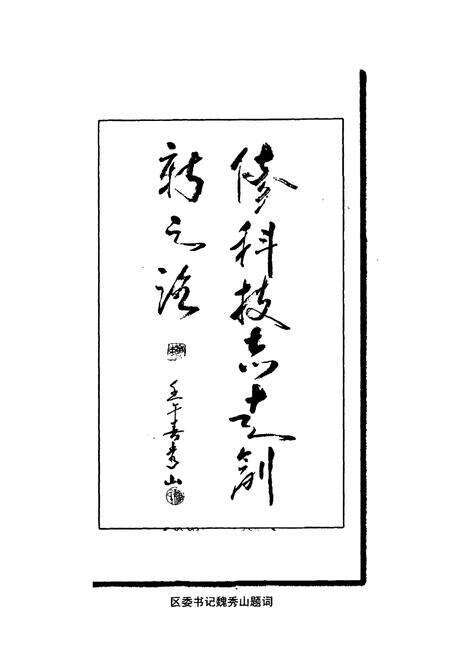 修科技志走創
新之路
壬午 秀山
区委书记魏秀山题词